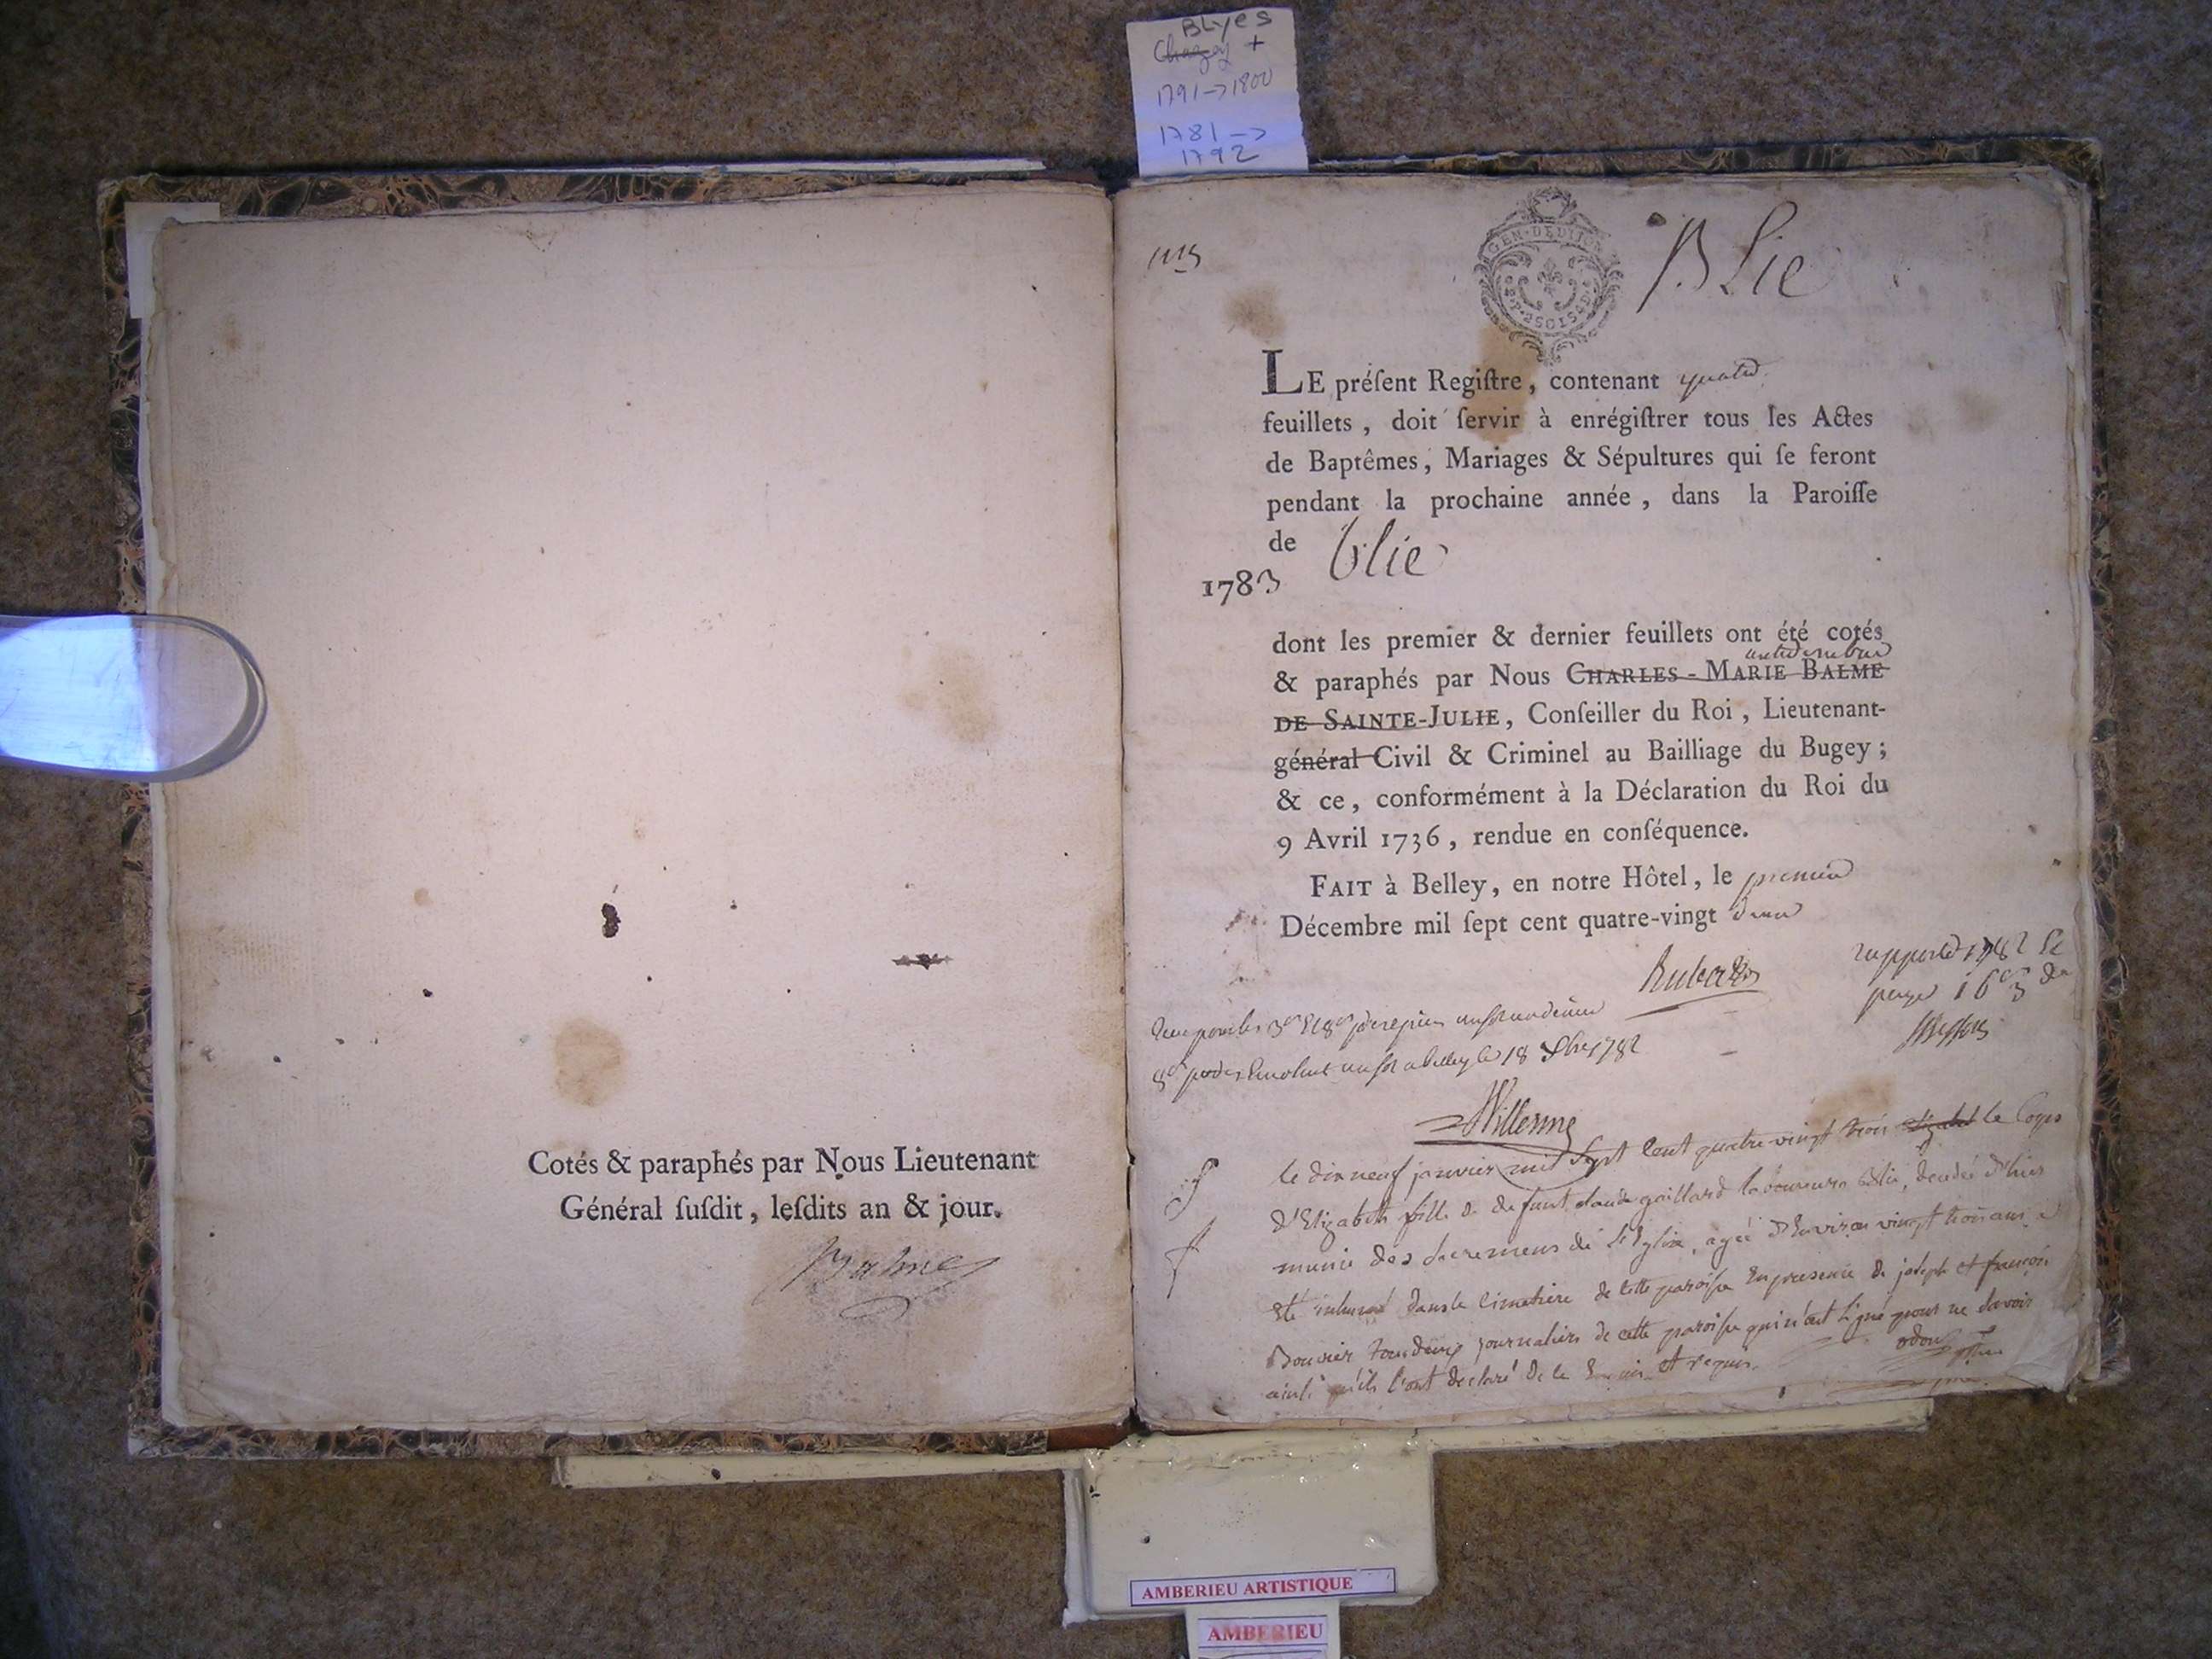 BLyes
Chazey +
1791->1800
1781->
1792
Cotés & paraphés par Nous Lieutenant
Général ſuſdit, leſdits an & jour.
Balme
GEN·DE DIJON
BLie
LE préſent Regiſtre, contenant quatre
feuillets, doit ſervir à enrégiſtrer tous les Actes
de Baptêmes, Mariages & Sépultures qui ſe feront
pendant la prochaine année, dans la Paroiſſe
de blie
1783
dont les premier & dernier feuillets ont été cotés
& paraphés par Nous CHARLES-MARIE BALME
DE SAINTE-JULIE, Conſeiller du Roi, Lieutenant-
général Civil & Criminel au Bailliage du Bugey;
& ce, conformément à la Déclaration du Roi du
9 Avril 1736, rendue en conſéquence.
FAIT à Belley, en notre Hôtel, le premier
Décembre mil ſept cent quatre-vingt deux
a belley le 18 Xbre 1782
Willerme
le dix neuf janvier mil Sept Cent quatre vingt trois le Corps
d'Elizabeth fille de defunt claude gaillard laboureur a blie, decedée d'hier
munie des Sacremens de l'Eglise, agée d'Environ vingt trois ans a
Eté inhumé dans le cimetiere de cette paroisse En presence de joseph et françois
Bouvier tous deux journaliers de cette paroisse qui n'ont signé pour ne savoir
ainsi qu'ils l'ont declaré de ce Enquis et requis
AMBERIEU ARTISTIQUE
AMBERIEU